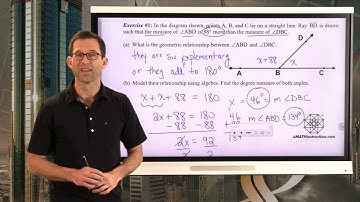 Exercise #1: In the diagram shown, points A, B, and C lie on a straight line. Ray BD is drawn
such that the measure of ∠ABD is 88° more than the measure of ∠DBC.
(a) What is the geometric relationship between ∠ABD and ∠DBC.
they are supplementary
or they add to 180°
D
x+88
x
A
B
C
(b) Model their relationship using algebra. Find the degree measure of both angles.
x + x + 88 = 180
2x + 88 = 180
-88 -88
2x = 92
2 2
x = 46° m∠DBC
46
+88
134
m∠ABD = 134°
eMATHinstruction.com